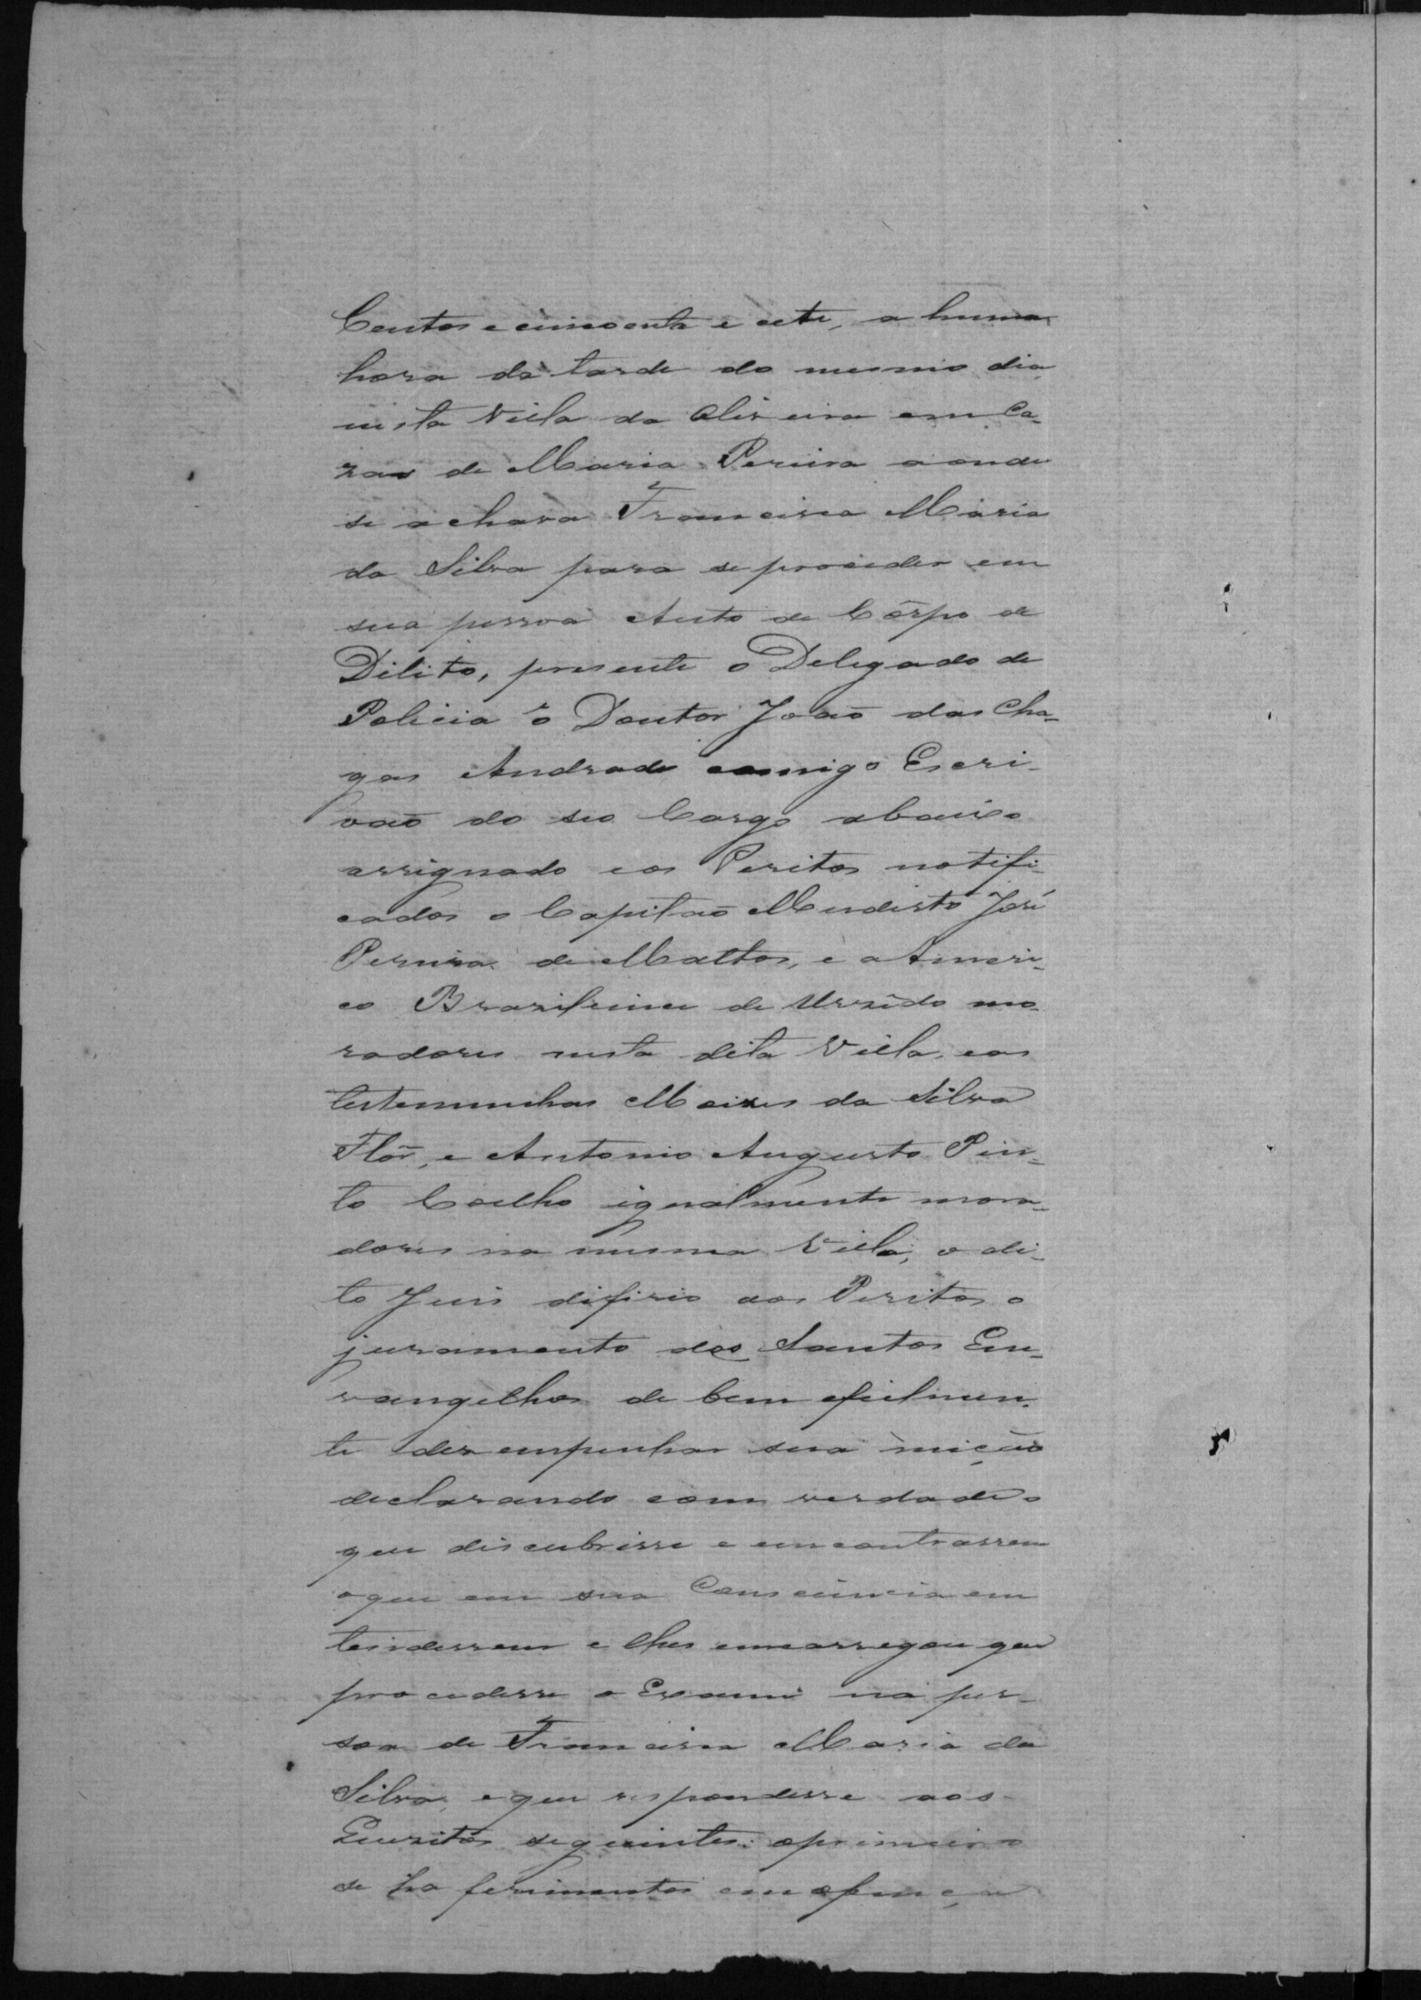 Centos e cincoenta e cete, a huma
hora da tarde do mesmo dia
nesta Villa da Oliveira em Ca-
zas de Maria Pereira aonde
se achava Francisca Maria
da Silva para se proceder em
sua pessoa Auto de Côrpo de
Dilito, presente o Delegado de
Policia o Doutor João das Cha-
gas Andrade comigo Escri-
vaõ do seo Cargo abaixo
assignado e os Peritos notifi-
cados o Capitaõ Modesto José
Pereira de Mattos, e a Ameri-
co Brazileiro de mo-
radores nesta dita Villa, e as
testemunhas Moizes da Silva
Flôr, e Antonio Augusto Pin-
to Coelho igualmente mora-
dores na mesma Villa, o di-
to Juis difirio aos Peritos o
juramento dos Santos Eu-
vangelhos de bem e fielmen-
te desempenhar sua miçaõ
declarando com verdade o
que discubrisse e encontrassem
o que em sua Consciencia em
tendessem e lhes encarregou que
procedesse a Exame na pes-
soa de Francisca Maria da
Silva, e que respondesse aos
Quezitos seguintes: o primeiro
se ha ferimentos ou ofença